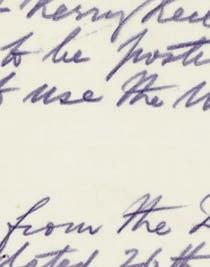 Kerry
to be poste
use the
from the
dated 26th